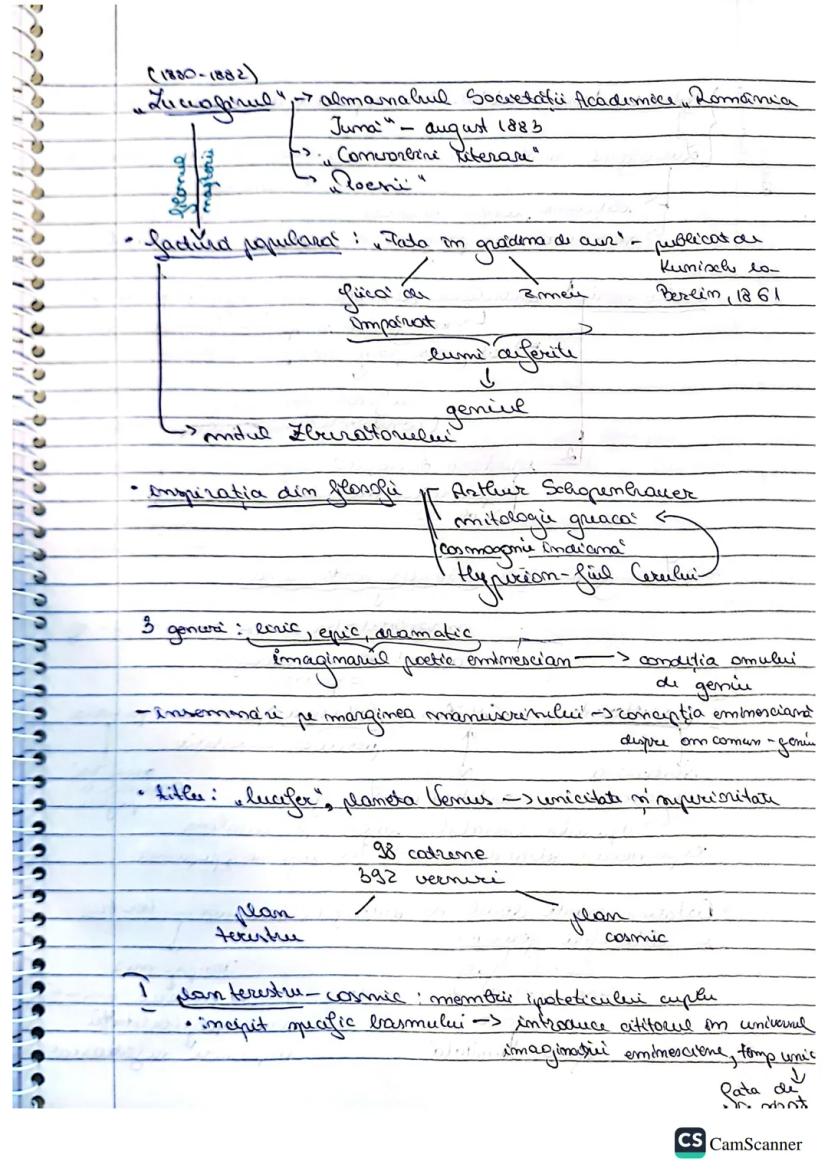 (1880-1882)
„Luceafărul" → almanahul Societății Academice „România
Jună" – august 1883
→ „Convorbiri Literare"
→ „Poesii"
geneza
• factură populară : „Fata în grădina de aur" – publicat de
Kunisch la
Berlin, 1861
fiică de zmeu
împărat
lumi diferite
↓
geniul
→ mitul Zburătorului
• inspirația din filosofii Arthur Schopenhauer
mitologie greacă
cosmogonie indiană
Hyperion – fiul Cerului
3 genuri : liric, epic, dramatic
imaginarul poetic eminescian → condiția omului
de geniu
– însemnări pe marginea manuscrisului → concepția eminesciană
despre om comun – geniu
• titlu : „lucifer", planeta Venus → unicitate și superioritate
98 catrene
392 versuri
plan plan
terestru cosmic
I plan terestru – cosmic : membrii ipoteticului cuplu
• incipit specific basmului → introduce cititorul în universul
imaginației eminesciene, timp unic
↓
fata de
CS CamScanner